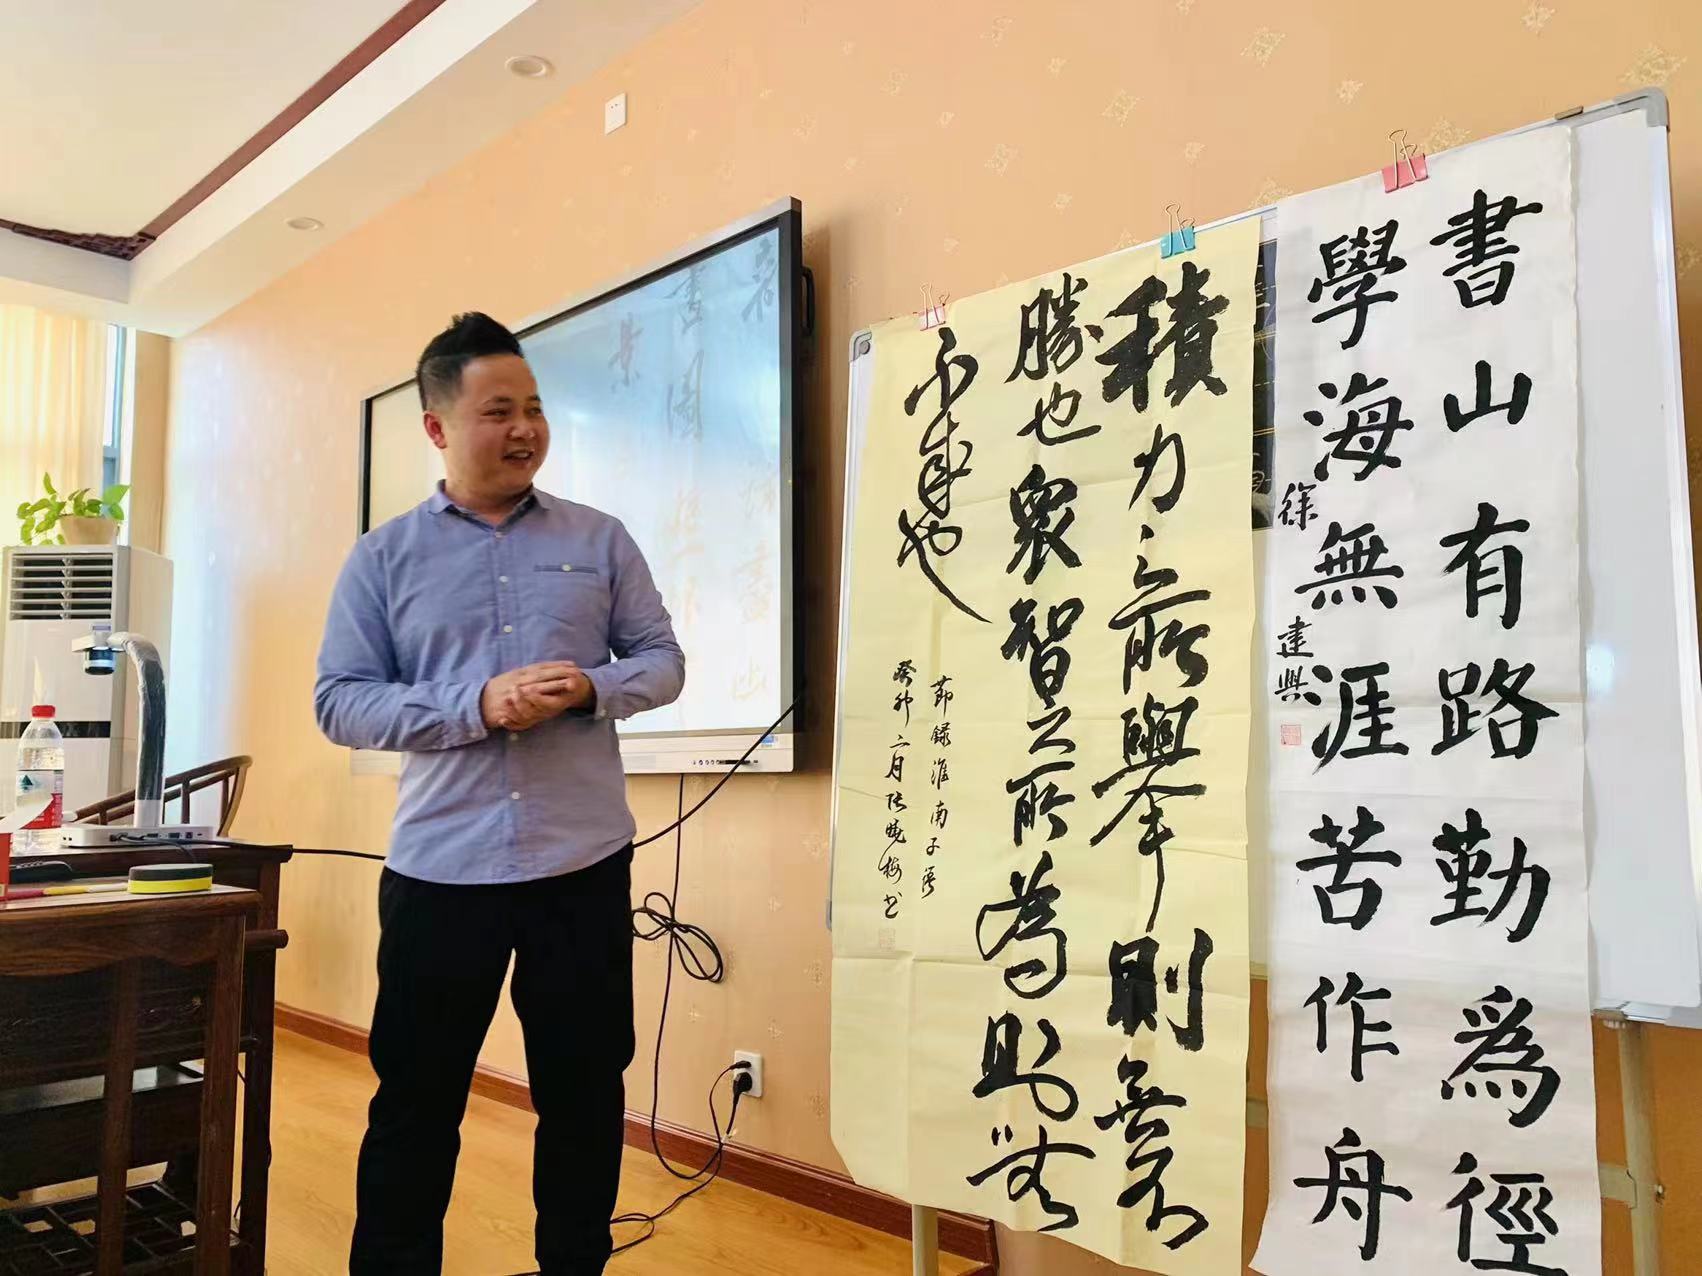 書山有路勤為徑
學海無涯苦作舟
徐建興
積力之所舉則無不
勝也眾智之所為則無
不成也
節錄淮南子語
癸卯二月張曉梅书